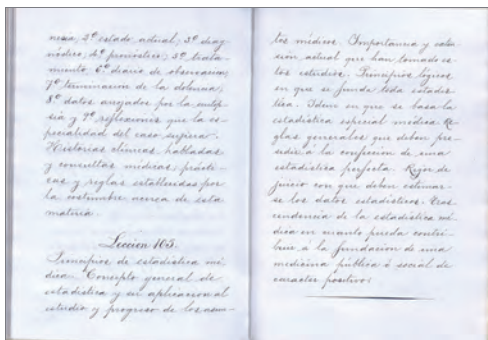 nesia, 2º estado actual, 3º diag-
nóstico, 4º pronóstico, 5º trata-
miento, 6º diario de observacion,
7º terminacion de la dolencia,
8º datos arrojados por la autop-
sia y 9º reflexiones que la es-
pecialidad del caso sugiera.
Historias clínicas, habladas
y consultas médicas, prácti-
cas y reglas establecidas por
la costumbre acerca de esta
materia.
Leccion 103.
Principios de estadística mé-
dica. Concepto general de
estadística y su aplicacion al
estudio y progreso de los asun-
tos médicos. Importancia y esten-
sion actual que han tomado es-
tos estudios. Principios lógicos
en que se funda toda estadís-
tica. Idem en que se basa la
estadística especial médica. Re-
glas generales que deben pre-
sidir á la confeccion de una
estadística perfecta. Rigor de
juicio con que deben estimar-
se los datos estadísticos. Tras-
cendencia de la estadística mé-
dica en cuanto pueda contri-
buir á la fundacion de una
medicina pública ó social de
carácter positivo.